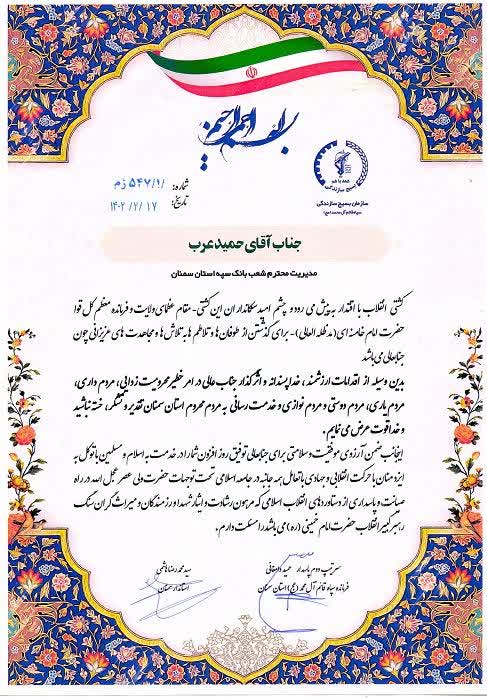 بسم الله الرحمن الرحیم
همه با هم
بسیج سازندگی
سازمان بسیج سازندگی
سپاه قائم آل محمد (عج)
شماره: ۵۴۷/۱/زم
تاریخ: ۱۴۰۲/۲/۱۷
جناب آقای حمید عرب
مدیریت محترم شعب بانک سپه استان سمنان
کشتی انقلاب با اقتدار به پیش می رود و چشم امید سکاندار این کشتی - مقام عظمای ولایت و فرمانده معظم کل قوا
حضرت امام خامنه ای (مدظله العالی) - برای گذشتن از طوفان ها و تلاطم ها به تلاش ها و مجاهدت های عزیزانی چون
جنابعالی می باشد
بدین وسیله از اقدامات ارزشمند، خداپسندانه و اثرگذار جناب عالی در امر خطیر محرومیت زدایی، مردم داری،
مردم یاری، مردم دوستی و مردم نوازی و خدمت رسانی به مردم محروم استان سمنان تقدیر و تشکر، خسته نباشید
و خداقوت عرض می نمایم.
اینجانب ضمن آرزوی موفقیت و سلامتی برای جنابعالی توفیق روز افزون شما در خدمت به اسلام و مسلمین با توکل به
ایزد منان با حرکت انقلابی و جهادی با تعامل همه جانبه در جامعه اسلامی تحت توجهات حضرت ولی عصر عجل الله در راه
صیانت و پاسداری از دستاوردهای انقلاب اسلامی که مرهون رشادت و ایثار شهدا و رزمندگان و میراث گران سنگ
رهبر کبیر انقلاب حضرت امام خمینی (ره) می باشد را مسئلت دارم.
سرتیپ دوم پاسدار حمید دامغانی
فرمانده سپاه قائم آل محمد (عج) استان سمنان
سید محمد رضا هاشمی
استاندار سمنان